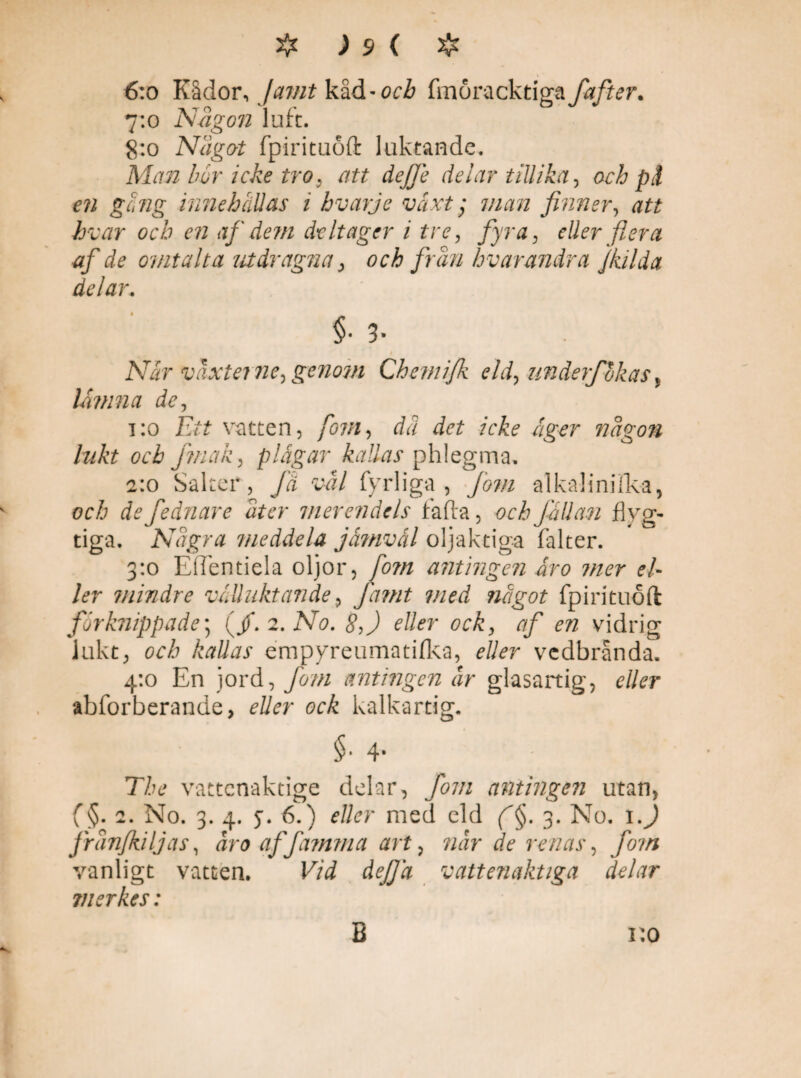 ☼ ) 9 ( ☼
6:o Kådor, ſamt kåd-och ſmöracktiga ſafter.
7:o Någon luft.
8:o Något ſpirituöſt luktande.
Man bör icke tro, att deſſe delar tillika, och på
en gång innehållas i hvarje växt; man finner, att
hvar och en af dem deltager i tre, fyra, eller flera
af de omtalta utdragna, och från hvarandra ſkilda
delar.
§. 3.
När växterne, genom Chemiſk eld, underſökas,
lämna de,
1:o Ett vatten, ſom, då det icke äger någon
lukt och ſmak, plägar kallas phlegma.
2:o Salter, ſå väl ſyrliga, ſom alkaliniſka,
och de ſednare åter merendels faſta, och ſällan flyg-
tiga. Några meddela jämväl oljaktiga ſalter.
3:o Eſſentiela oljor, ſom antingen äro mer el-
ler mindre välluktande, ſamt med något ſpirituöſt
förknippade; (ſ. 2. No. 8,) eller ock, af en vidrig
lukt, och kallas empyreumatiſka, eller vedbrända.
4:o En jord, ſom antingen är glasartig, eller
abſorberande, eller ock kalkartig.
§. 4.
The vattenaktige delar, ſom antingen utan,
(§. 2. No. 3. 4. 5. 6.) eller med eld (§. 3. No. 1.)
frånſkiljas, äro af ſamma art, när de renas, ſom
vanligt vatten. Vid deſſa vattenaktiga delar
merkes:
B 1:o